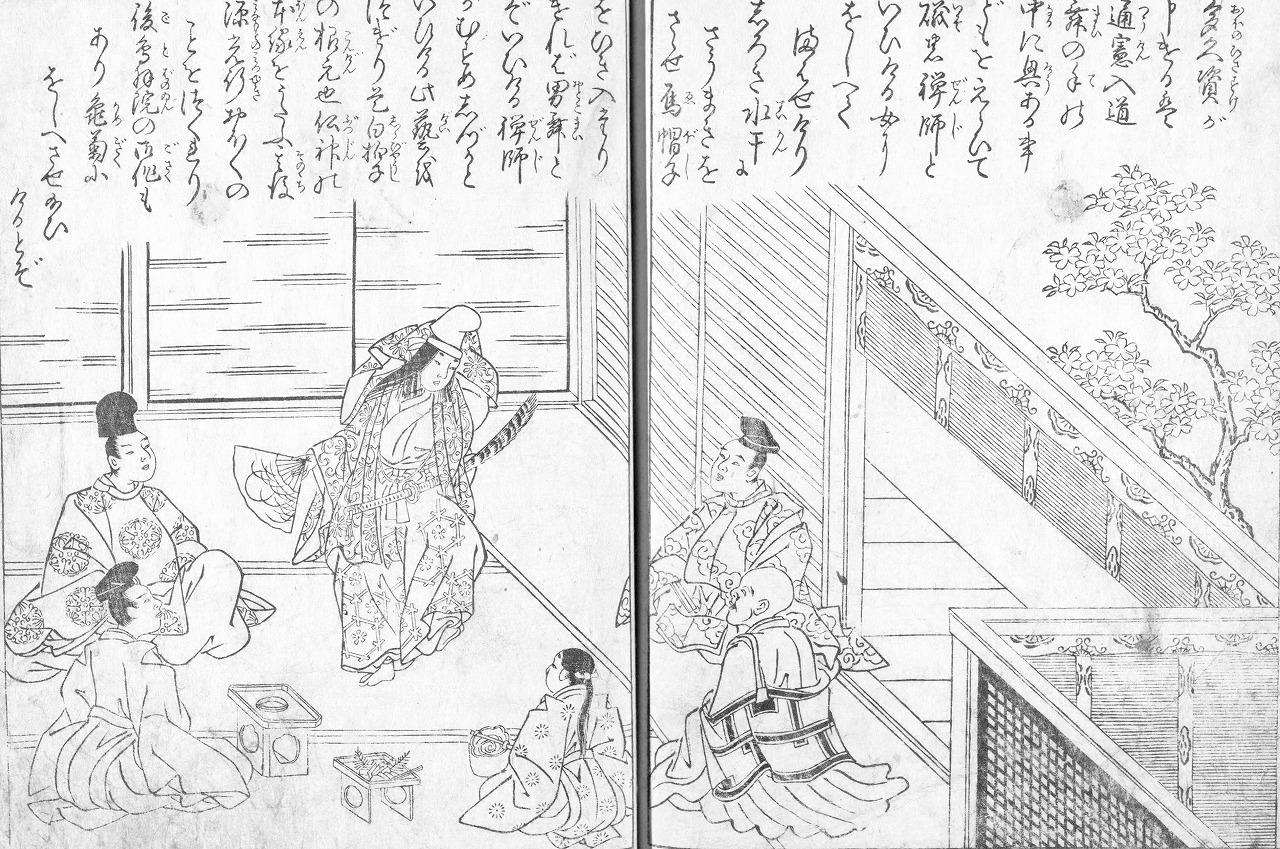 多久資が
申ける は
通憲入道
舞の手の
中に興ある事
どもをえらいて
磯の禅師と
いひける女に
をしへて
まはせけり
しろき水干に
さうまきを
させ烏帽子
をひき入たり
ければ男舞と
ぞいひける禅師
がむすめしづかと
いひける此藝を
つぎけり是白拍子
の根元也仏神の
本縁をうたふ其後
源光行おほくの
ことをつくれり
後鳥羽院の御作も
あり亀菊に
をしへさせ給ひ
けるとぞ